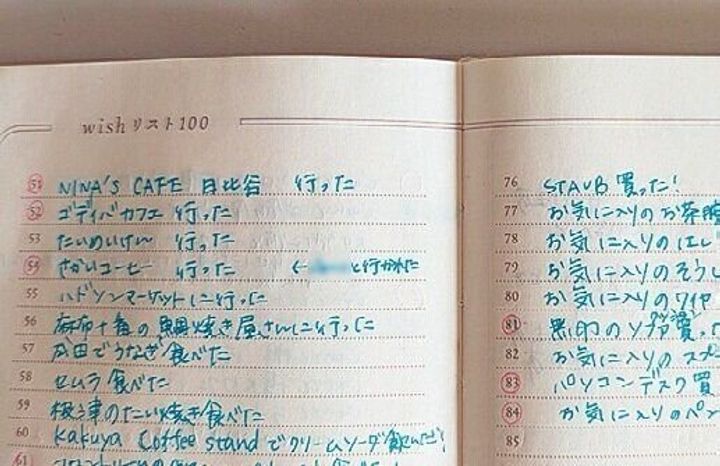 wishリスト100
51 NINA'S CAFE 日比谷 行った
52 ゴディバカフェ 行った
53 たいめいけん 行った
54 さかいコーヒー 行った ← と行かれた
55 ハドソンマーケットに行った
56 麻布十番の鯛焼き屋さんに行った
57 成田でうなぎ食べた
58 セムラ食べた
59 根津のたい焼き食べた
60 kakuya Coffee standでクリームソーダ飲んだ!
61
76 STAUB 買った!
77 お気に入りのお茶
78 お気に入りの
79 お気に入りのそうじ
80 お気に入りのワイヤ
81 無印のソファ買った
82 お気に入りのスプ
83 パソコンデスク買
84 お気に入りのパン
85